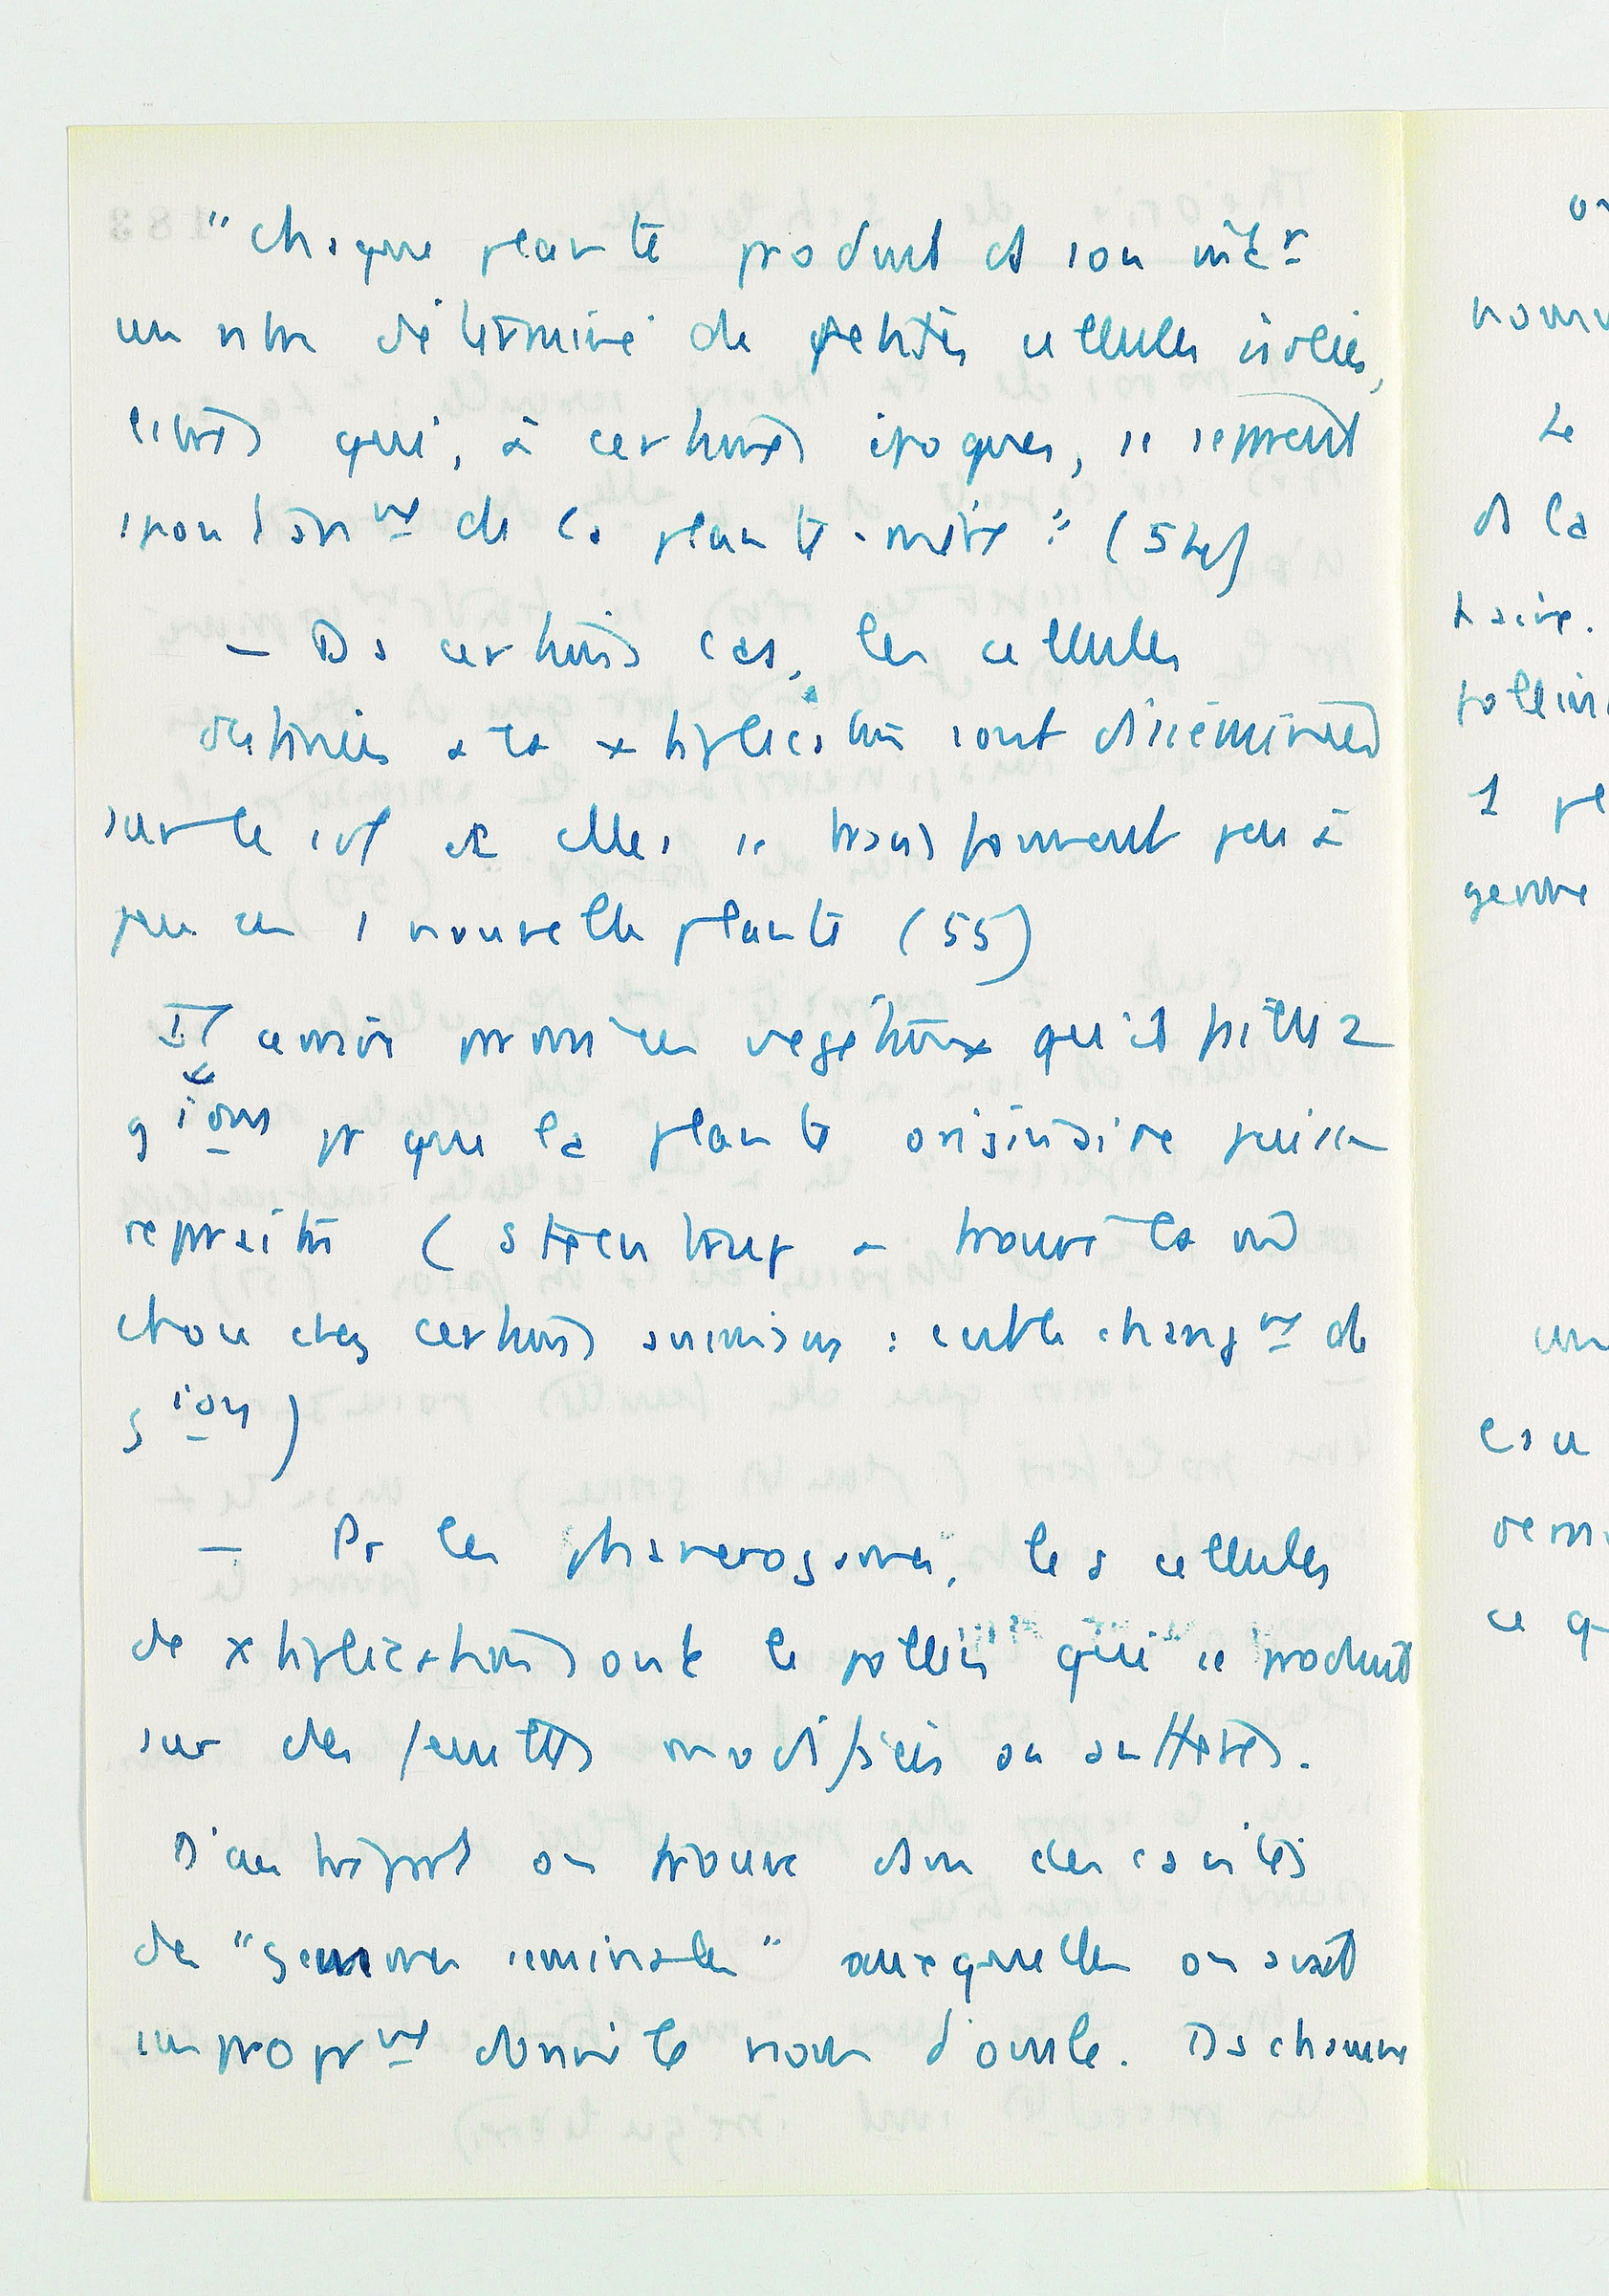 "chaque plante produit ds son intér
un nbre déterminé de petites cellules isolées,
libres qui, à certaines époques, se séparent
spontaném̲e̲n̲t̲ de la plante-mère". (54)
— Ds certains cas, les cellules
destinées à la xtiplication sont disséminées
sur le sol et elles se transforment peu à
peu en 1 nouvelle plante (55)
Il y a aussi premiers végétaux qu'il faille 2
gions pr que la plante originaire puisse
reparaître (Steenstrup a trouvé la m̂
chose chez certains animaux : c'est le changmt de
gion)
— Pr les phanérogames, les cellules
de xtiplications sont le pollen qui se produit
sur des feuilles modifiées ou anthères.
D'autre part on trouve dans des cavités
des "gemmes séminales" auxquelles on avait
impropmt donné le nom d'ovule. Ds chacune
nomm
Le
ds la
taire.
1
germe
un
ce q